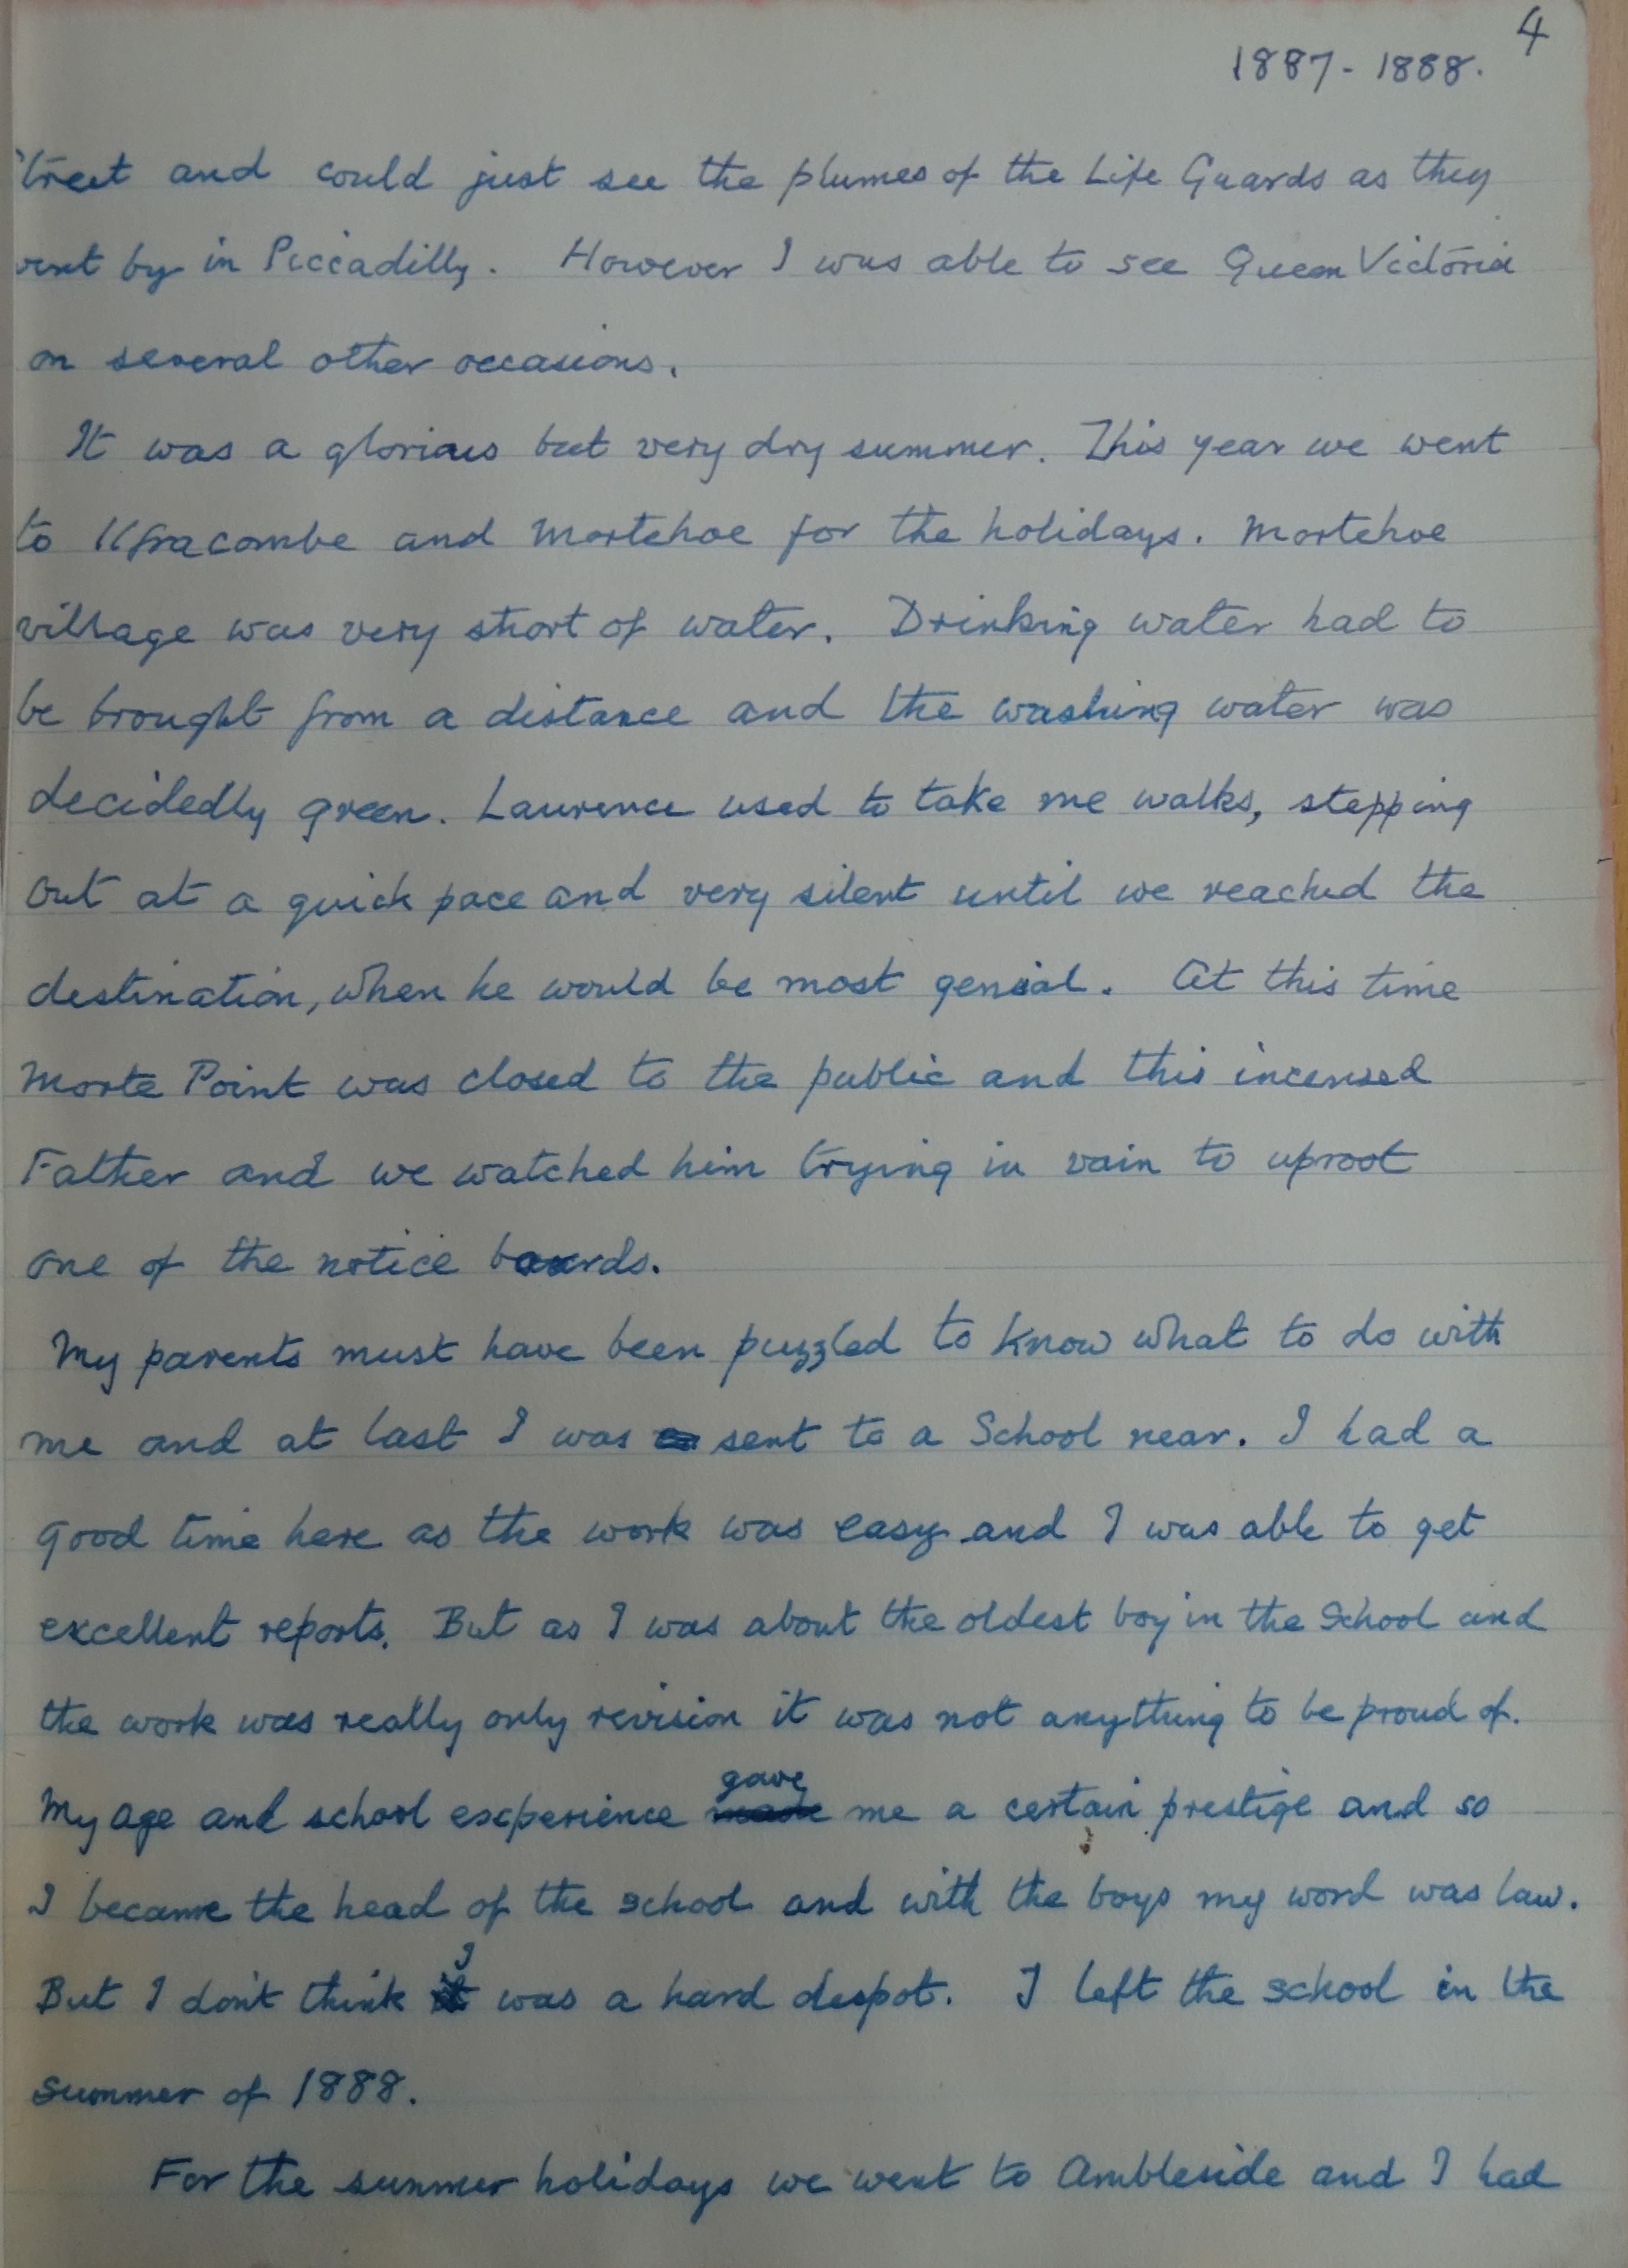 4
1887 - 1888.
Street and could just see the plumes of the Life Guards as they
went by in Piccadilly. However I was able to see Queen Victoria
on several other occasions.
It was a glorious but very dry summer. This year we went
to Ilfracombe and Mortehoe for the holidays. Mortehoe
village was very short of water. Drinking water had to
be brought from a distance and the washing water was
decidedly green. Laurence used to take me walks, stepping
out at a quick pace and very silent until we reached the
destination, when he would be most genial. At this time
Morte Point was closed to the public and this incensed
Father and we watched him trying in vain to uproot
one of the notice boards.
My parents must have been puzzled to know what to do with
me and at last I was sent to a School near. I had a
good time here as the work was easy and I was able to get
excellent reports. But as I was about the oldest boy in the School and
the work was really only revision it was not anything to be proud of.
My age and school experience gave me a certain prestige and so
I became the head of the school and with the boys my word was law.
But I don't think I was a hard despot. I left the school in the
summer of 1888.
For the summer holidays we went to Ambleside and I had